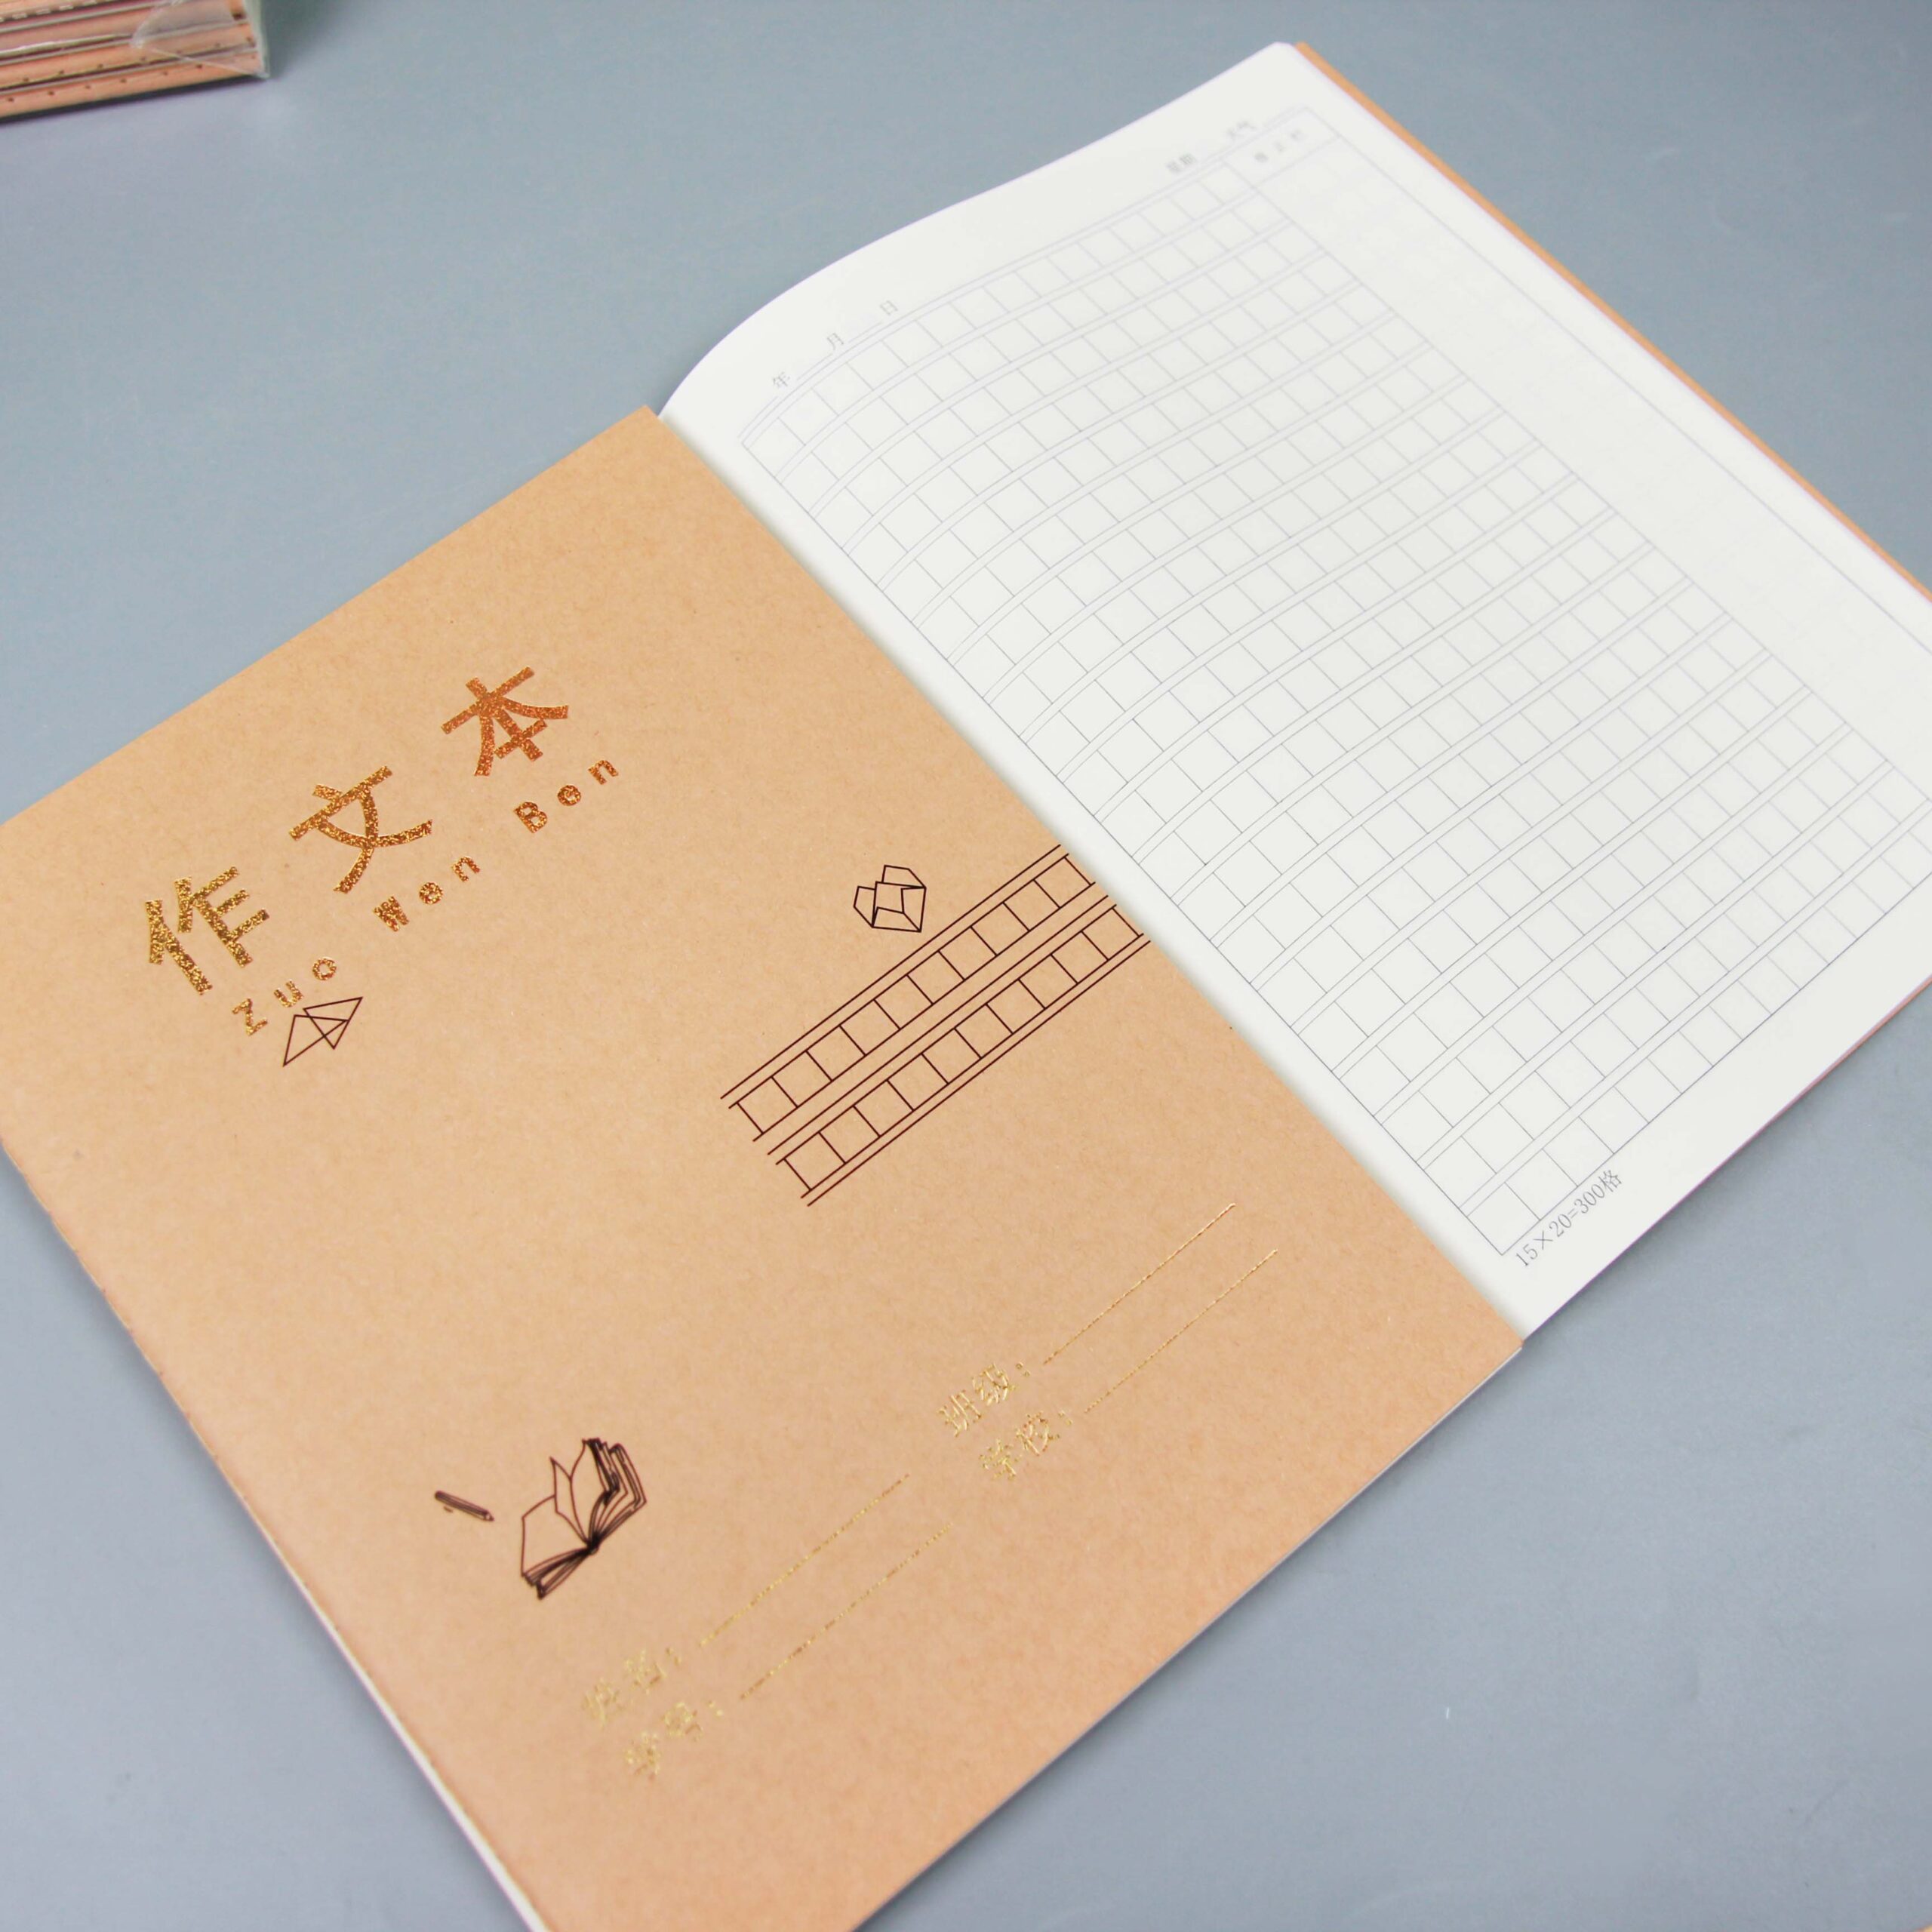 作文本
Zuo Wen Ben
班级:
学校:
姓名:
学号:
年 月 日
星期 天气
15×20=300格